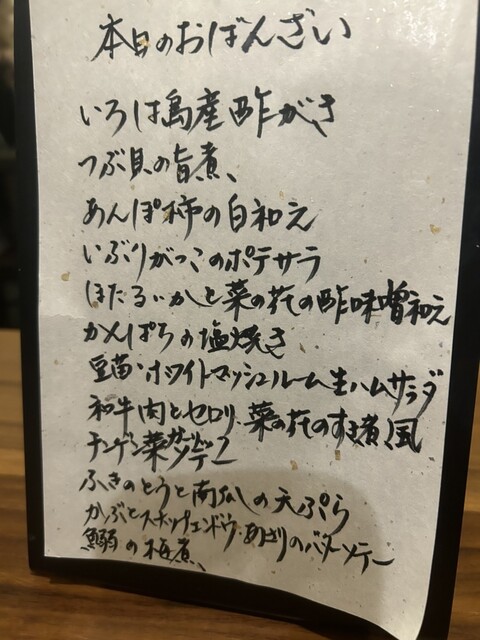 本日のおばんざい
いろは島産酢がき
つぶ貝の旨煮、
あんぽ柿の白和え
いぶりがっこのポテサラ
ほたるいかと菜の花の酢味噌和え
かんぱちの塩焼き
豆苗・ホワイトマッシュルーム生ハムサラダ
和牛肉とセロリ・菜の花のすき煮風
チンゲン菜ガーリックソテー
ふきのとうと南瓜の天ぷら
かぶとスナップエンドウ・あさりのバターソテー
鰯の梅煮、